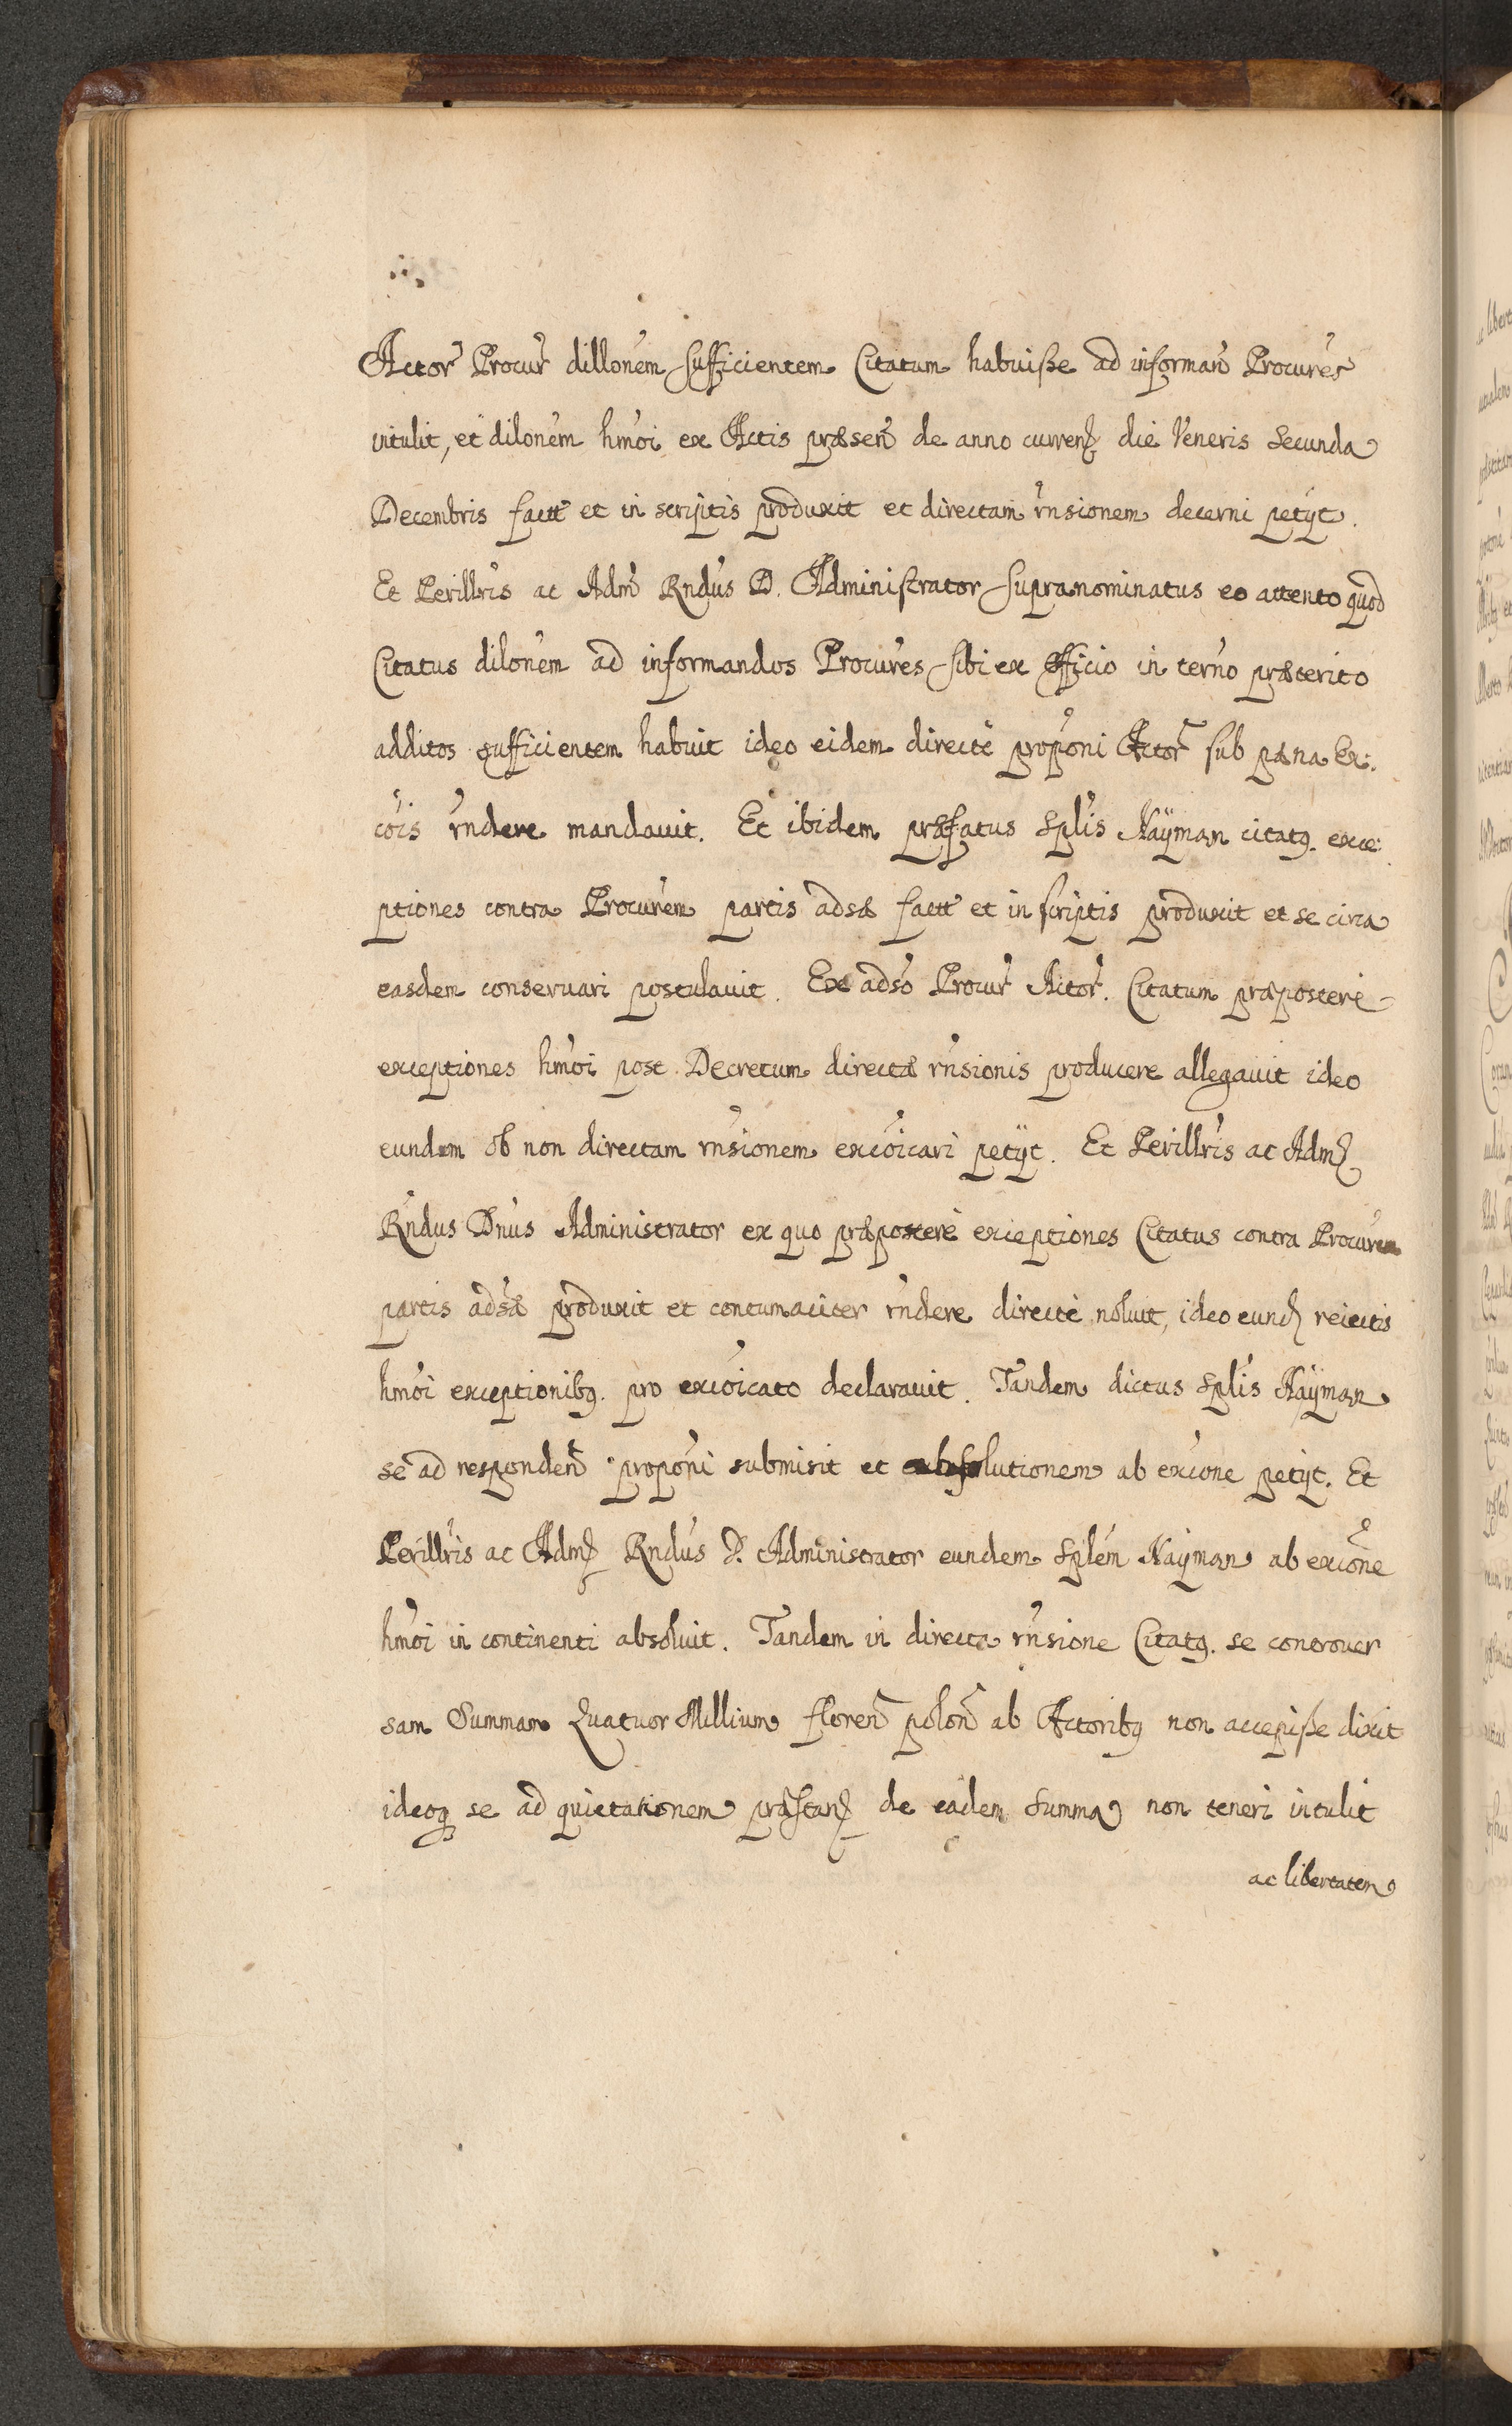 Actor Procur dillonem sufficientem Citatum habuisse ad informan Procures
intulit, et dilonem hmoi ex Actis præsen de anno curren die Veneris Secunda
Decembris fact et in scriptis produxit et directam rnsionem decerni petyt.
Et Perillris ac Adm Rndus D. Administrator supranominatus eo attento quod
Citatus dilonem ad informandos Procures sibi ex officio in terno præterito
additos sufficientem habuit ideo eidem directe proponi Actor sub pæna Ex:
cois rndere mandavit. Et ibidem præfatus Splis Naÿman citatq. exce:
ptiones contra Procurem partis adsæ fact et in scriptis produxit et se circa
easdem conservari postulavit. Ex adso Procur Actor. Citatum præpostere
exceptiones hmoi post Decretum directæ rnsionis producere allegavit ideo
eundem ob non directam rnsionem excoicari petÿt. Et Perillris ac Adm
Rndus Dnus Administrator ex quo præpostere exceptiones Citatus contra Procurem
partis adsæ produxit et contumaciter rndere directe noluit, ideo eund reiectis
hmoi exceptionibq. pro excoicato declaravit. Tandem dictus Splis Naÿman
se ad responden proponi submisit et absolutionem ab excione petyt. Et
Perillris ac Adm Rndus D. Administrator eundem Splem Naÿman ab excione
hmoi in continenti absoluit. Tandem in directa rnsione Citatq. se controver
sam Summam Quatuor Millium floren polon ab Actoribq non accepisse dixit
ideoq se ad quietationem præstan de eadem Summa non teneri intulit
ac libertatem